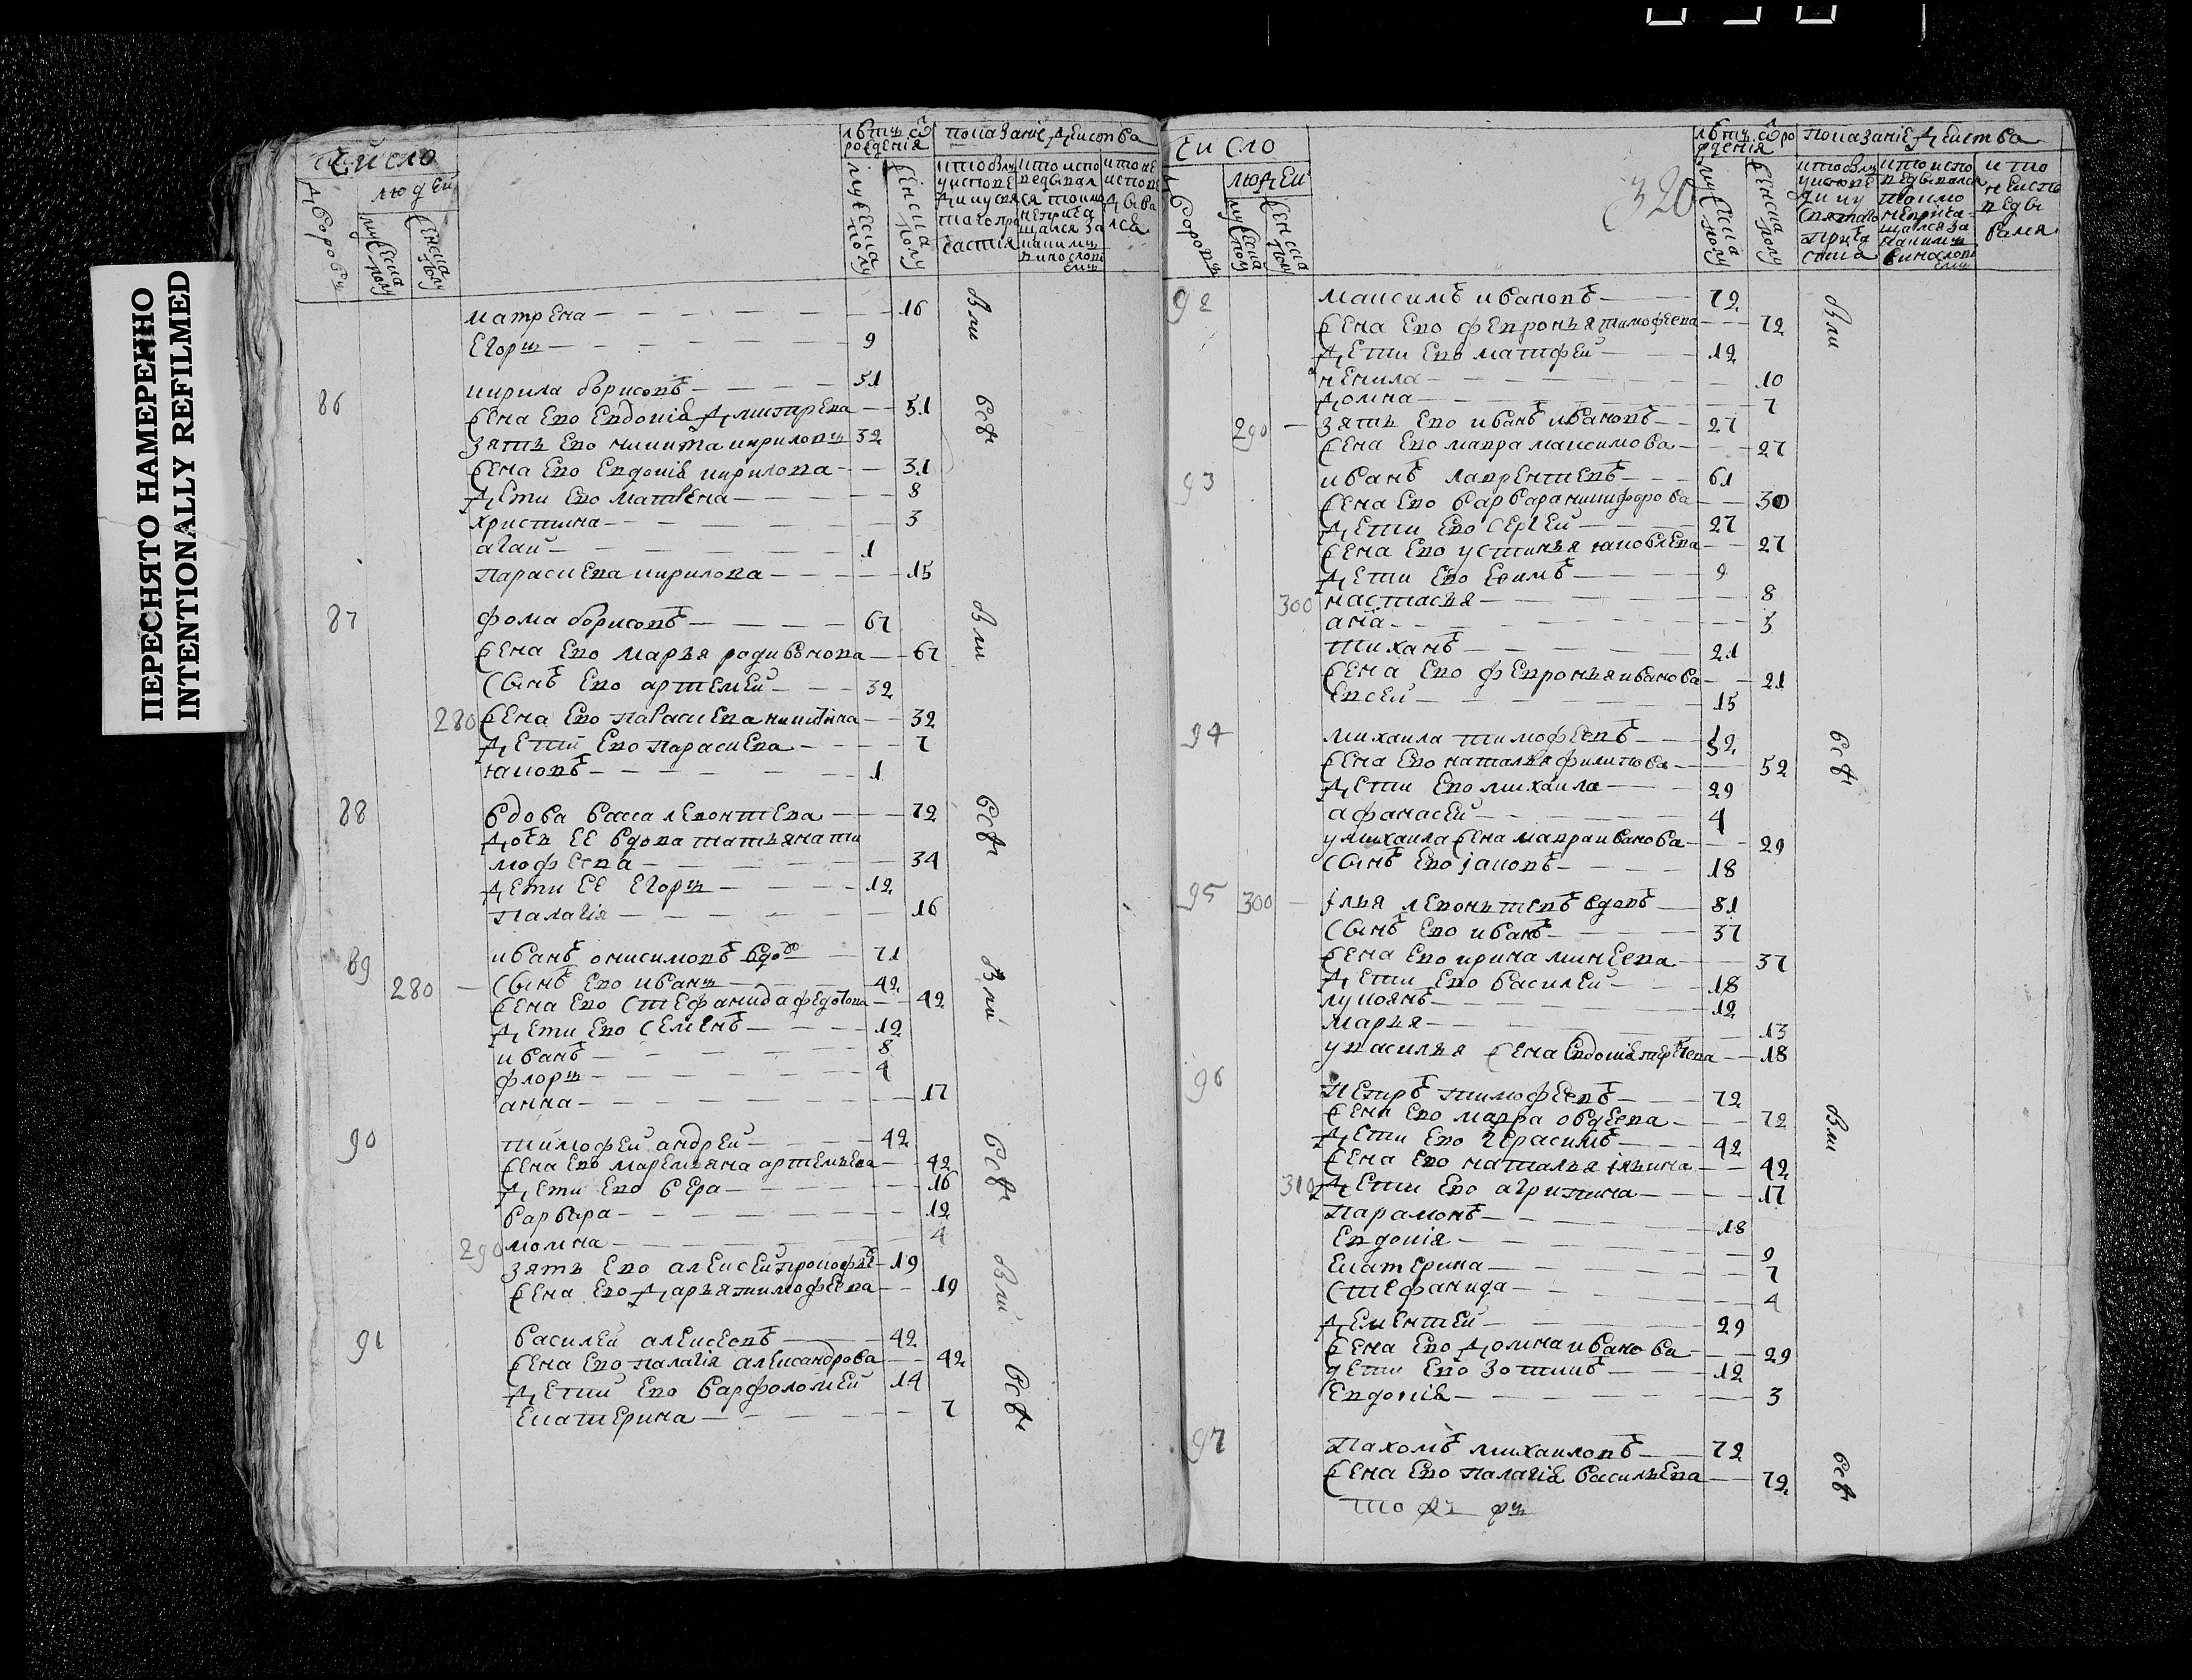 ПЕРЕСНЯТО НАМЕРЕННО
INTENTIONALLY REFILMED
Число
людей
дворовъ
мужеска полу
женска полу
лѣтъ ѿ рождения
мужеска полу
женска полу
показание действа
матрена 16
вли
егоръ 9
86 кирила борисовъ 51
жена ево евдокия дмитрева 51
всѣ
зять ево никита кириловъ 32
жена ево евдокия кирилова 31
дети ево матвена 8
христина 3
агаи 1
параскева кирилова 15
87 фома борисовъ 67
жена ево марья родивонова 67
вли
сынъ ево артемеи 32
280 жена ево параскева никитина 32
дети ево параскева 7
яковъ 1
88 вдова васса левонтева 72
всѣ
дочь ее вдова татьяна ти
мофеева 34
дети ее егоръ 12
палагия 16
89 иванъ онисимовъ вдо 71
280 сынъ ево иванъ 42
вли
жена ево стефанида федотова 42
дети ево семенъ 12
иванъ 8
флоръ 4
анна 17
90 тимофеи андреи 42
жена ево маремьяна артемьева 42
всѣ
дети ево вера 16
варвара 12
290 домна 4
зять ево алексеи прокофье 19
вли
жена ево дарья тимофеева 19
91 василеи алексеевъ 42
жена ево палагия александрова 42
всѣ
дети ево варфоломеи 14
екатерина 7
число
людеи
дворовъ
мужеска полу
женска полу
320
лѣтъ ѿ рождения
мужеска полу
женска полу
показание действа
92 максимъ ивановъ 72
вли
жена ево февронья тимофеева 72
дети ево матфеи 12
ненила 10
домна 7
290 зять ево иванъ ивановъ 27
жена ево мавра максимова 27
93 иванъ лаврентиевъ 61
жена ево варвара никифорова 30
дети ево сергеи 27
жена ево устинья яковлева 27
дети ево ефимъ 9
300 настасья 8
ана 3
тиханъ 21
жена ево февронья иванова 21
евсеи 15
94 михаила тимофеевъ 52
всѣ
жена ево наталья филипова 52
дети ево михаила 29
афанасеи 4
у михаила жена мавра иванова 29
сынъ ево iаковъ 18
95 300 iлья левонтевъ вдовъ 81
сынъ ево иванъ 37
жена ево ирина минеева 37
дети ево василеи 18
лукоянъ 12
марья 13
у василья жена евдокия 18
96 петръ тимофеевъ 72
жена ево марфа овдеева 72
вли
дети ево герасимъ 42
жена ево наталья ильина 42
310 дети ево агрипина 17
парамонъ 18
евдокия 9
екатерина 7
стефанида 4
дементеи 29
жена ево домна иванова 29
дети ево зотикъ 12
евдокия 3
97 пахомъ михаиловъ 72
всѣ
жена ево палагия васильева 72